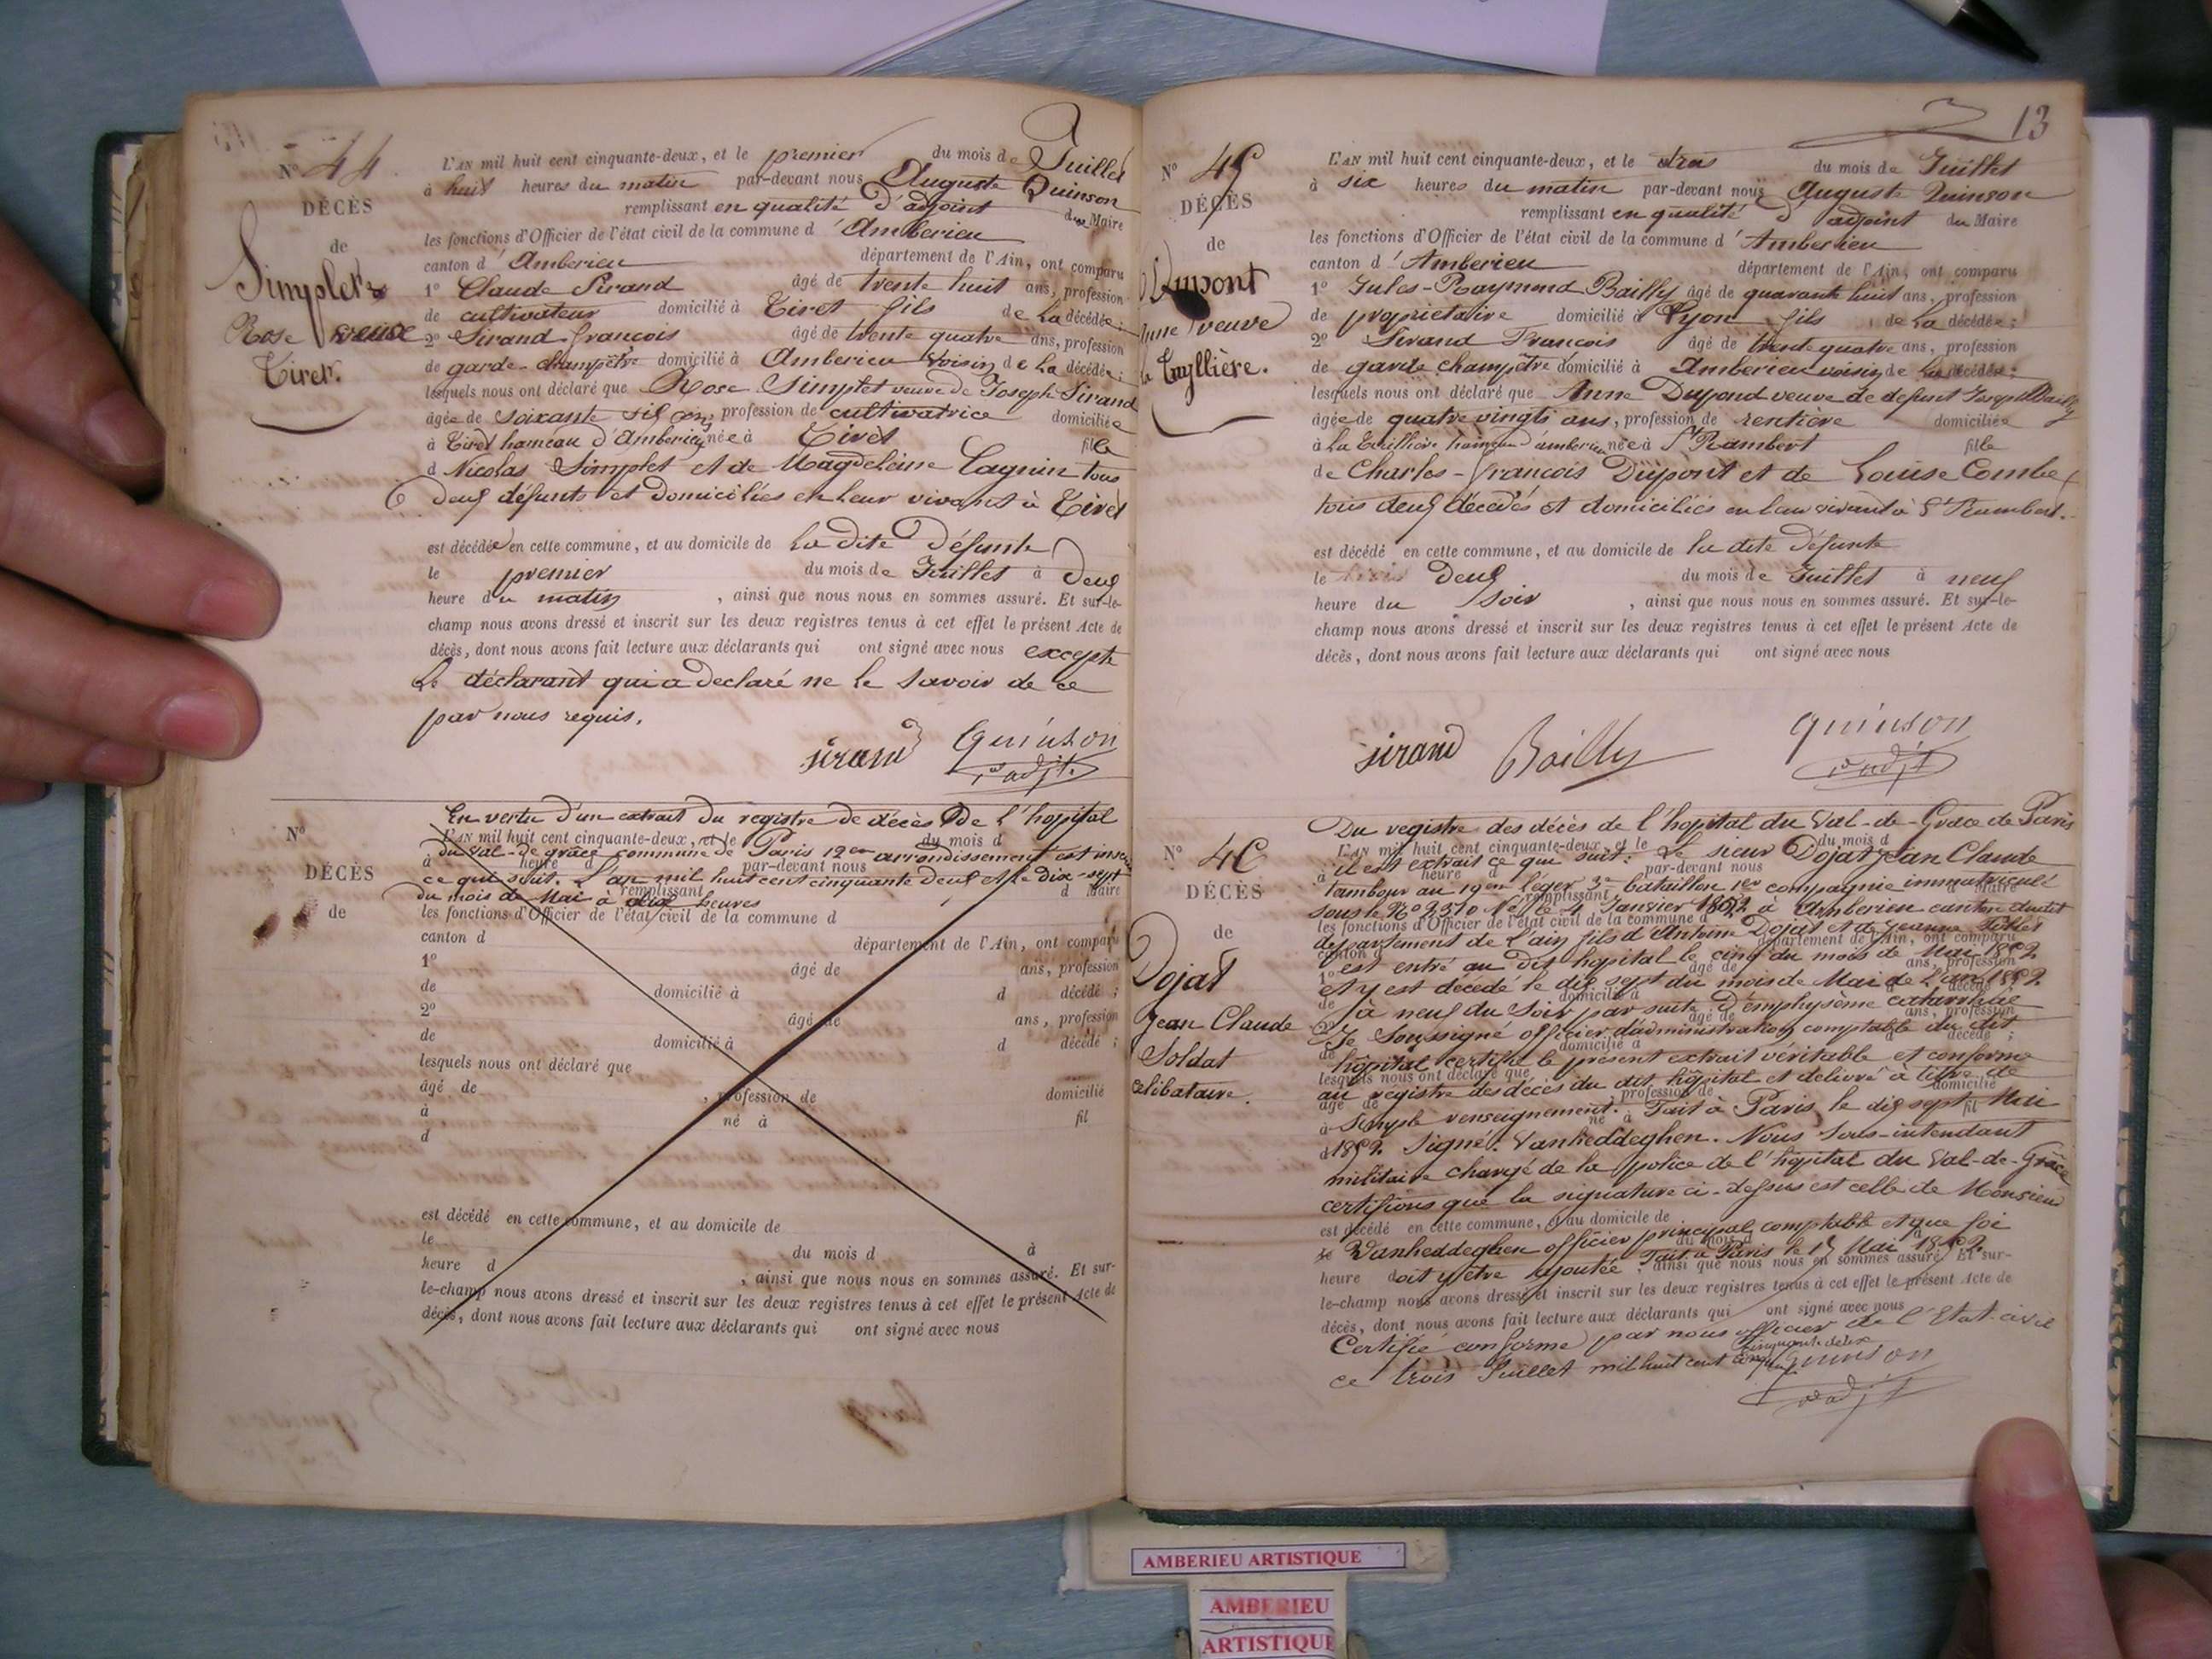 N° 44.
DÉCÈS
de
Simplet
Rose veuve
Tiret.
L'AN mil huit cent cinquante-deux, et le premier du mois de Juillet
à huit heures du matin par-devant nous Auguste Quinson
remplissant en qualité d'adjoint du Maire
les fonctions d'Officier de l'état civil de la commune d'Amberieu
canton d'Amberieu département de l'Ain, ont comparu
1° Claude Sirand âgé de trente huit ans, profession
de cultivateur domicilié à Tiret fils de la décédée;
2° Sirand françois âgé de trente quatre ans, profession
de garde-champêtre domicilié à Amberieu voisin de la décédée;
lesquels nous ont déclaré que Rose Simplet veuve de Joseph Sirand
âgée de soixante six ans, profession de cultivatrice domiciliée
à Tiret hameau d'Amberieu née à Tiret fille
d Nicolas Simplet et de Magdeleine Cagnin tous
deux défunts et domiciliés en leur vivant à Tiret
est décédée en cette commune, et au domicile de la dite Défunte
le premier du mois de Juillet à deux
heure du matin, ainsi que nous nous en sommes assuré. Et sur-le-
champ nous avons dressé et inscrit sur les deux registres tenus à cet effet le présent Acte de
décès, dont nous avons fait lecture aux déclarants qui ont signé avec nous excepté
Le déclarant qui a declaré ne le savoir de ce
par nous requis.
sirand Quinson
adjt.
N°
DÉCÈS
de
En vertu d'un extrait du registre de décès de l'hopital
L'AN mil huit cent cinquante-deux, et le du mois d
du Val-de-grâce commune de Paris 12em arrondissement est inscrit
à heure d par-devant nous
ce qui suit. L'an mil huit cent cinquante deux et le dix-sept
remplissant d Maire
du mois de Mai à dix heures
les fonctions d'Officier de l'état civil de la commune d
canton d département de l'Ain, ont comparu
1° âgé de ans, profession
de domicilié à d décédé ;
2° âgé de ans, profession
de domicilié à d décédé ;
lesquels nous ont déclaré que
âgé de , profession de domicilié
à né à fil
d
est décédé en cette commune, et au domicile de
le du mois d à
heure d , ainsi que nous nous en sommes assuré. Et sur-
le-champ nous avons dressé et inscrit sur les deux registres tenus à cet effet le présent Acte de
décès, dont nous avons fait lecture aux déclarants qui ont signé avec nous
13
N° 45
DÉCÈS
de
Dupont
Anne veuve
la Tuyllière.
L'AN mil huit cent cinquante-deux, et le trois du mois de Juillet
à six heures du matin par-devant nous Auguste Quinson
remplissant en qualité d'adjoint du Maire
les fonctions d'Officier de l'état civil de la commune d'Amberieu
canton d'Amberieu département de l'Ain, ont comparu
1° Jules-Raymond Bailly âgé de quarante huit ans, profession
de propriétaire domicilié à Lyon fils de la décédée;
2° Sirand François âgé de trente quatre ans, profession
de garde champêtre domicilié à Amberieu voisin de la décédée;
lesquels nous ont déclaré que Anne Dupond veuve de defunt Joseph Bailly
âgée de quatre vingts ans, profession de rentière domiciliée
à La Tuillière hameau d'amberieu née à St Rambert fille
de Charles-françois Dupont et de Louise Combe
tous deux décédés et domiciliés en leur vivant à St Rambert.
est décédé en cette commune, et au domicile de la dite Défunte
le deux du mois de Juillet à neuf
heure du soir, ainsi que nous nous en sommes assuré. Et sur-le-
champ nous avons dressé et inscrit sur les deux registres tenus à cet effet le présent Acte de
décès, dont nous avons fait lecture aux déclarants qui ont signé avec nous
sirand Bailly quinson
adjt
N° 46
DÉCÈS
de
Dojat
Jean Claude
Soldat
celibataire.
Du registre des décès de l'hopital du Val-de-Grâce de Paris
L'AN mil huit cent cinquante-deux et le du mois d
il est extrait ce que suit: Le sieur Dojat Jean Claude
à heure d par-devant nous
tambour au 19em léger 3e bataillon 1er compagnie immatriculé
remplissant Maire
sous le N° 2310 Né le 4 Janvier à Amberieu canton dudit
les fonctions d'Officier de l'état civil de la commune d
département de l'ain fils d'Antoine Dojat et de jeanne
canton d département de l'Ain, ont comparu
est entré au dit hopital le cinq du mois de Mai 1852
1° âgé de ans, profession
et y est décédé le dix sept du mois de Mai de l'an 1852
de domicilié à décédé ;
à neuf du soir par suite d'emphysème catarrhal
2° âgé de ans, profession
Je soussigné officier d'administration comptable du dit
de domicilié à d décédé ;
hôpital certifie le présent extrait véritable et conforme
lesquels nous ont déclaré que
au registre des décès du dit hôpital et delivré à titre de
âgé de profession de domicilié
simple renseignement. Fait à Paris le dix sept Mai
à né à fil
1852. Signé. Vanheddeghen. Nous sous-intendant
d
militaire chargé de la police de l'hôpital du Val-de-Grâce
certifions que la signature ci-dessus est celle de Monsieur
est décédé en cette commune, et au domicile de
Vanheddeghen officier principal comptable et que foi
le du mois d
doit y être ajoutée. Fait à Paris le 17 Mai 1852.
heure d ainsi que nous nous en sommes assuré Et sur-
le-champ nous avons dressé et inscrit sur les deux registres tenus à cet effet le présent Acte de
décès, dont nous avons fait lecture aux déclarants qui ont signé avec nous
Certifié conforme par nous officier de l'Etat-civil
ce trois Juillet mil huit cent cinquante deux
quinson
adjt
AMBERIEU ARTISTIQUE
AMBERIEU
ARTISTIQUE